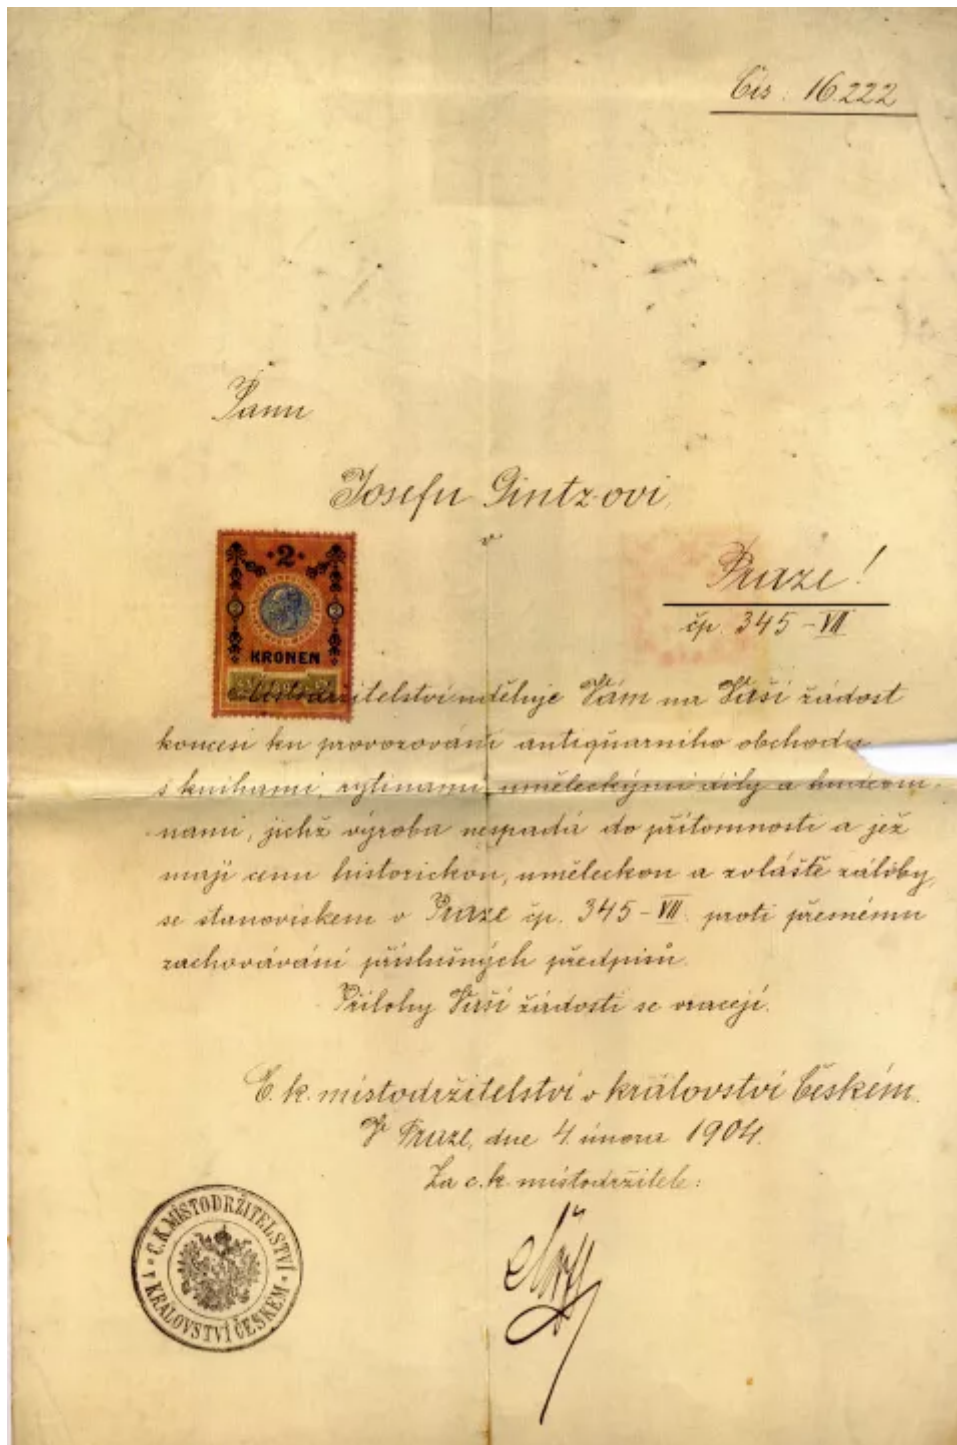 Čís: 16.222
Panu
Josefu Gintz-ovi,
v
Praze!
čp. 345-VII
2
2 2
KRONEN
Místodržitelství uděluje Vám na Vaší žádost
koncesi ku provozování antiquarního obchodu
s knihami, rytinami, uměleckými díly a
nami, jichž výroba nespadá do přítomnosti a jež
mají cenu historickou, uměleckou a zvláště záliby,
se stanoviskem v Praze čp. 345-VII. proti přesnému
zachovávání příslušných předpisů.
Přílohy Vaší žádosti se vracejí.
C. k. místodržitelství v království Českém.
V Praze, dne 4. února 1904.
Za c. k. místodržitele:
C.K. MÍSTODRŽITELSTVÍ
V KRÁLOVSTVÍ ČESKÉM